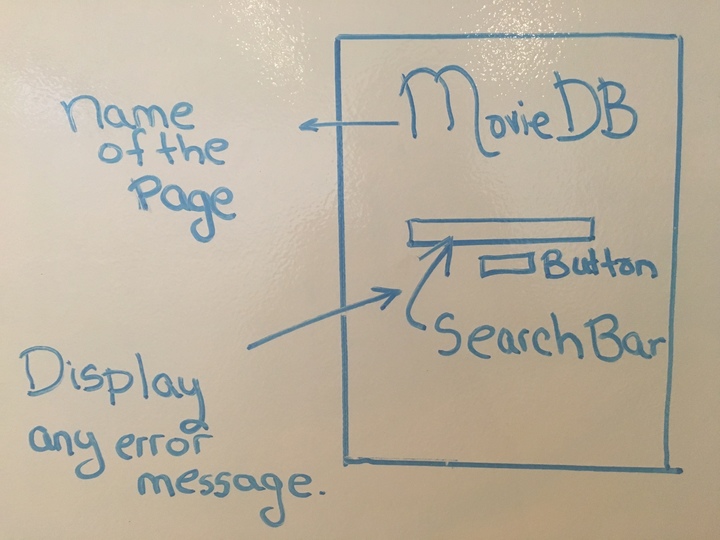 Name
of the
Page
MovieDB
Button
SearchBar
Display
any error
message.